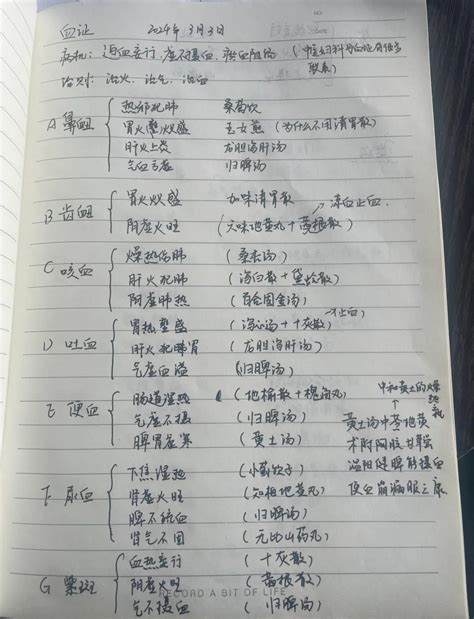 NO
DATE
血证 2024年3月3日
病机: 迫血妄行, 虚不摄血, 瘀血阻络 (中医妇科
联系)
治则: 治火、治气、治血
A 鼻衄
热邪犯肺 桑菊饮
胃火炽盛 玉女煎 (为什么不用清胃散)
肝火上炎 龙胆泻肝汤
气血亏虚 归脾汤
B 齿衄
胃火炽盛 加味清胃散 凉血止血.
阴虚火旺 (六味地黄丸+茜根散)
C 咳血
燥热伤肺 (桑杏汤)
肝火犯肺 (泻白散+黛蛤散)
阴虚肺热 (百合固金汤)
D 吐血
胃热壅盛 (泻心汤+十灰散) 止血
肝火犯胃 (龙胆泻肝汤)
气虚血溢 (归脾汤)
E 便血
肠道湿热 (地榆散+槐角丸)
气虚不摄 (归脾汤)
脾胃虚寒 (黄土汤)
中和黄土的燥热
黄土汤中芩地黄
术附阿胶甘草尝
温阳健脾能摄血
便血崩漏服之康
F 尿血
下焦湿热 (小蓟饮子)
肾虚火旺 (知柏地黄丸)
脾不统血 (归脾汤)
肾气不固 (无比山药丸)
G 紫斑
血热妄行 (十灰散)
阴虚火旺 (茜根散)
气不摄血 (归脾汤)
RECORD A BIT OF LIFE